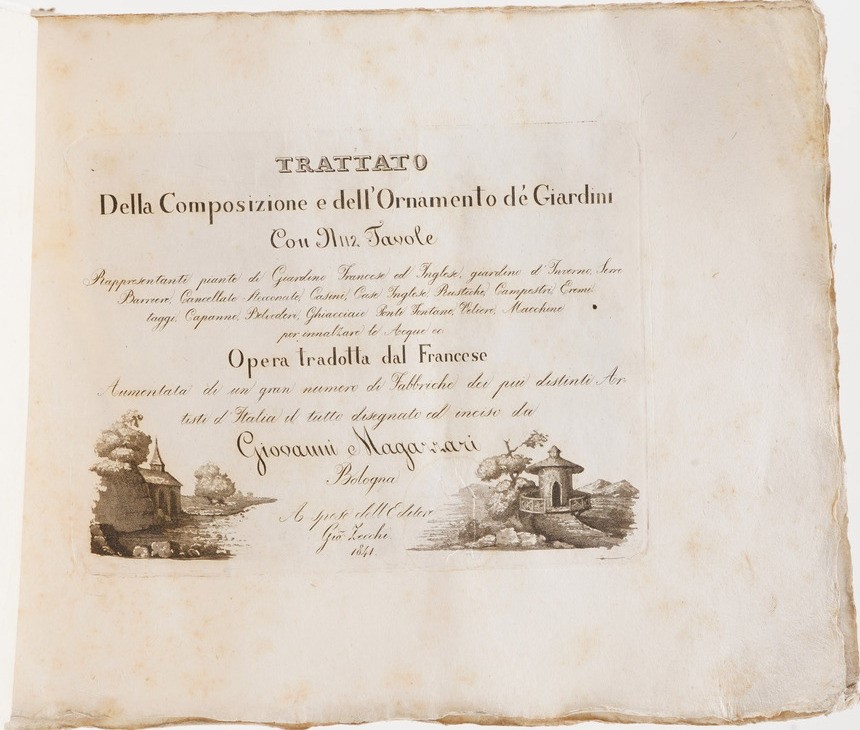 TRATTATO
Della Composizione e dell'Ornamento dé Giardini
Con N 112. Tavole
Rappresentanti piante di Giardino Francese ed Inglese, giardino d'Inverno, Serre
Barriere, Cancellate Casini, Case Inglese, Rustiche, Campestri, Eremi
taggi, Capanne, Belvederi, Ghiacciaie Ponti Fontane, Veliere, Macchine
per innalzare le Acque ec
Opera tradotta dal Francese
Aumentata di un gran numero di Fabbriche dei più distinti Ar
tisti d'Italia il tutto disegnato ed inciso da
Giovanni Magazzari
Bologna
A spese dell'Editore
Gio Zecchi.
1841.